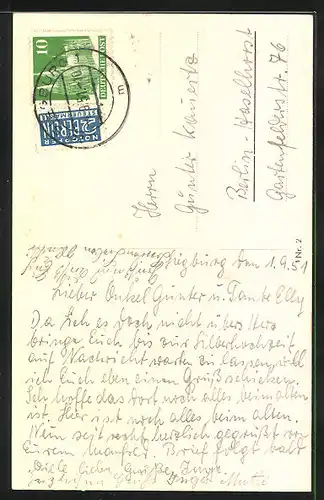 10
DEUTSCHE POST
NOTOPFER
2 BERLIN
STEUERMARKE
Herrn
Günter
Berlin-Haselhorst
Gartenfelderstr. 76
Nr. 2
Siegburg den 1.9.51
Lieber Onkel Günter u. Tante Elly
Da ich es doch nicht übers Herz
bringe Euch bis zur Silberhochzeit
auf Nachricht warten zu lassen, will
ich Euch eben einen Gruß schicken.
Ich hoffe das dort noch alles beim alten
ist. Hier ist noch alles beim alten.
Nun seid recht herzlich gegrüßt von
Eurem Manfred. Brief folgt bald
Viele liebe Grüße